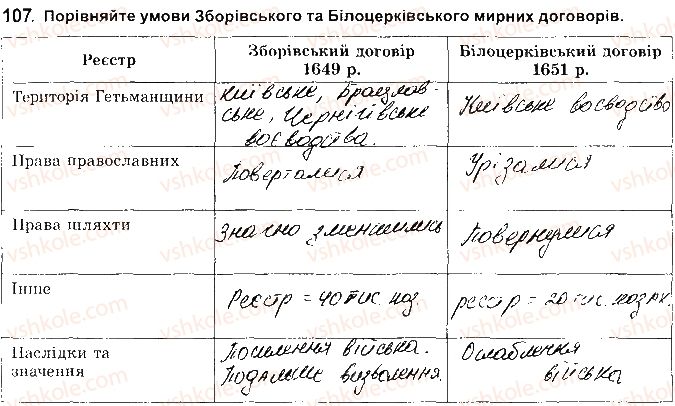 107. Порівняйте умови Зборівського та Білоцерківського мирних договорів.
Реєстр
Зборівський договір
1649 р.
Білоцерківський договір
1651 р.
Територія Гетьманщини
Київське, Брацлав-
ське, Чернігівське
воєводства.
Київське воєводство
Права православних
Поверталися
Урізалися
Права шляхти
Значно зменшились
Повернулися
Інше
Реєстр = 40 тис. коз.
реєстр = 20 тис. козак.
Наслідки та
значення
Посилення війська.
Подальше визволення.
Ослаблення
війська
vshkole.com